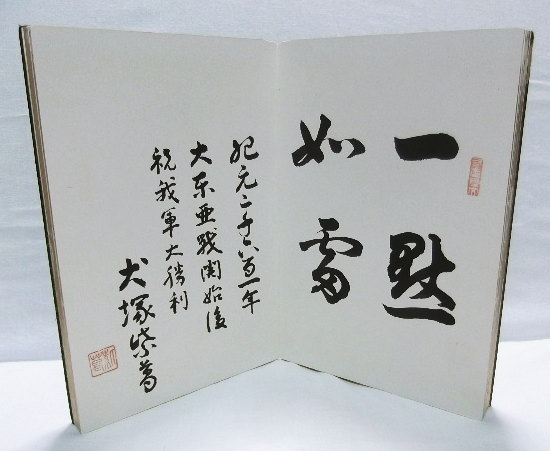 一黙
如雷
紀元二千六百一年
大東亜戦開始後
祝我軍大勝利
犬塚